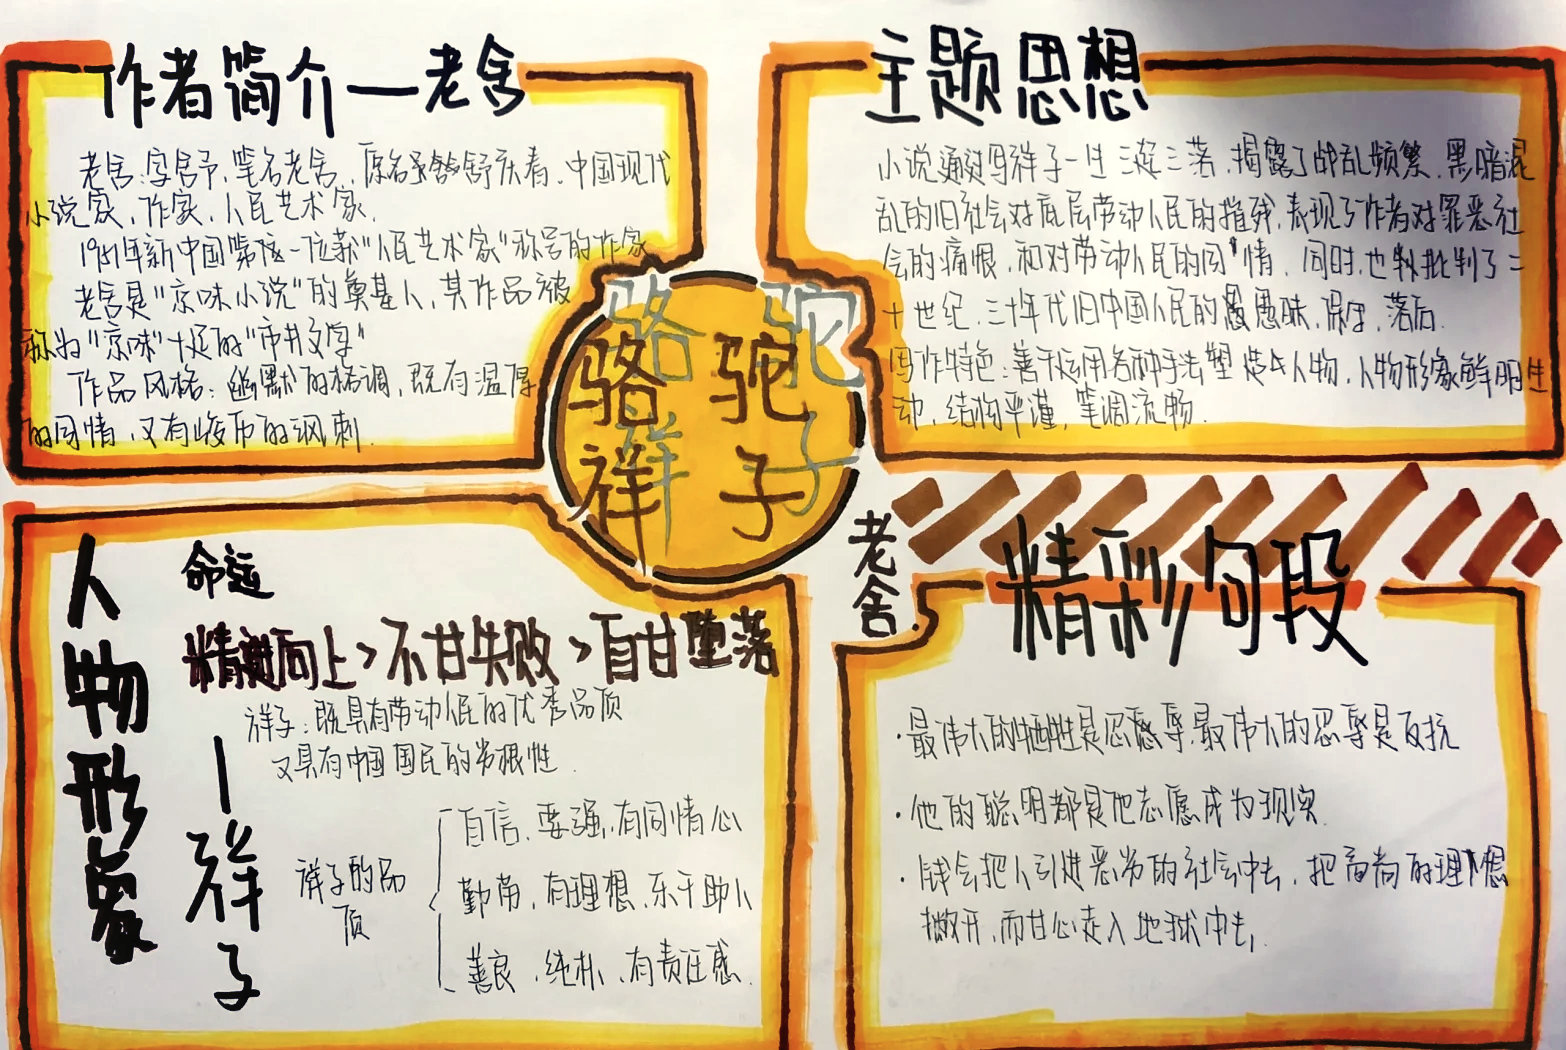 作者简介—老舍
老舍:字舍予,笔名老舍,原名舒庆春。中国现代
小说家,作家,人民艺术家.
1951年新中国第一位获"人民艺术家"称号的作家
老舍是"京味小说"的奠基人,其作品被
称为"京味"十足的"市井文字"
作品风格:幽默的格调,既有温厚
的同情,又有峻厉的讽刺.
主题思想
小说通过写祥子一生三起三落,揭露了战乱频繁,黑暗混
乱的旧社会对底层劳动人民的摧残,表现了作者对罪恶社
会的痛恨,和对劳动人民的同情,同时,也批判了二
十世纪,三十年代旧中国人民的愚昧,保守,落后.
写作特色:善于运用各种手法塑造人物,人物形象鲜明生
动,结构严谨,笔调流畅.
骆驼
祥子
老舍
人物形象
—祥子
命运
精进向上>不甘失败>自甘堕落
祥子:既具有劳动人民的优秀品质
又具有中国国民的劣根性.
祥子的品
质
自信,要强,有同情心
勤劳,有理想,乐于助人
善良,纯朴,有责任感.
精彩句段
·最伟大的牺牲是忍辱,最伟大的忍辱是反抗
·他的聪明都是他志愿成为现实.
·钱会把人引进恶劣的社会中去,把高尚的理想
撇开,而甘心走入地狱中去,